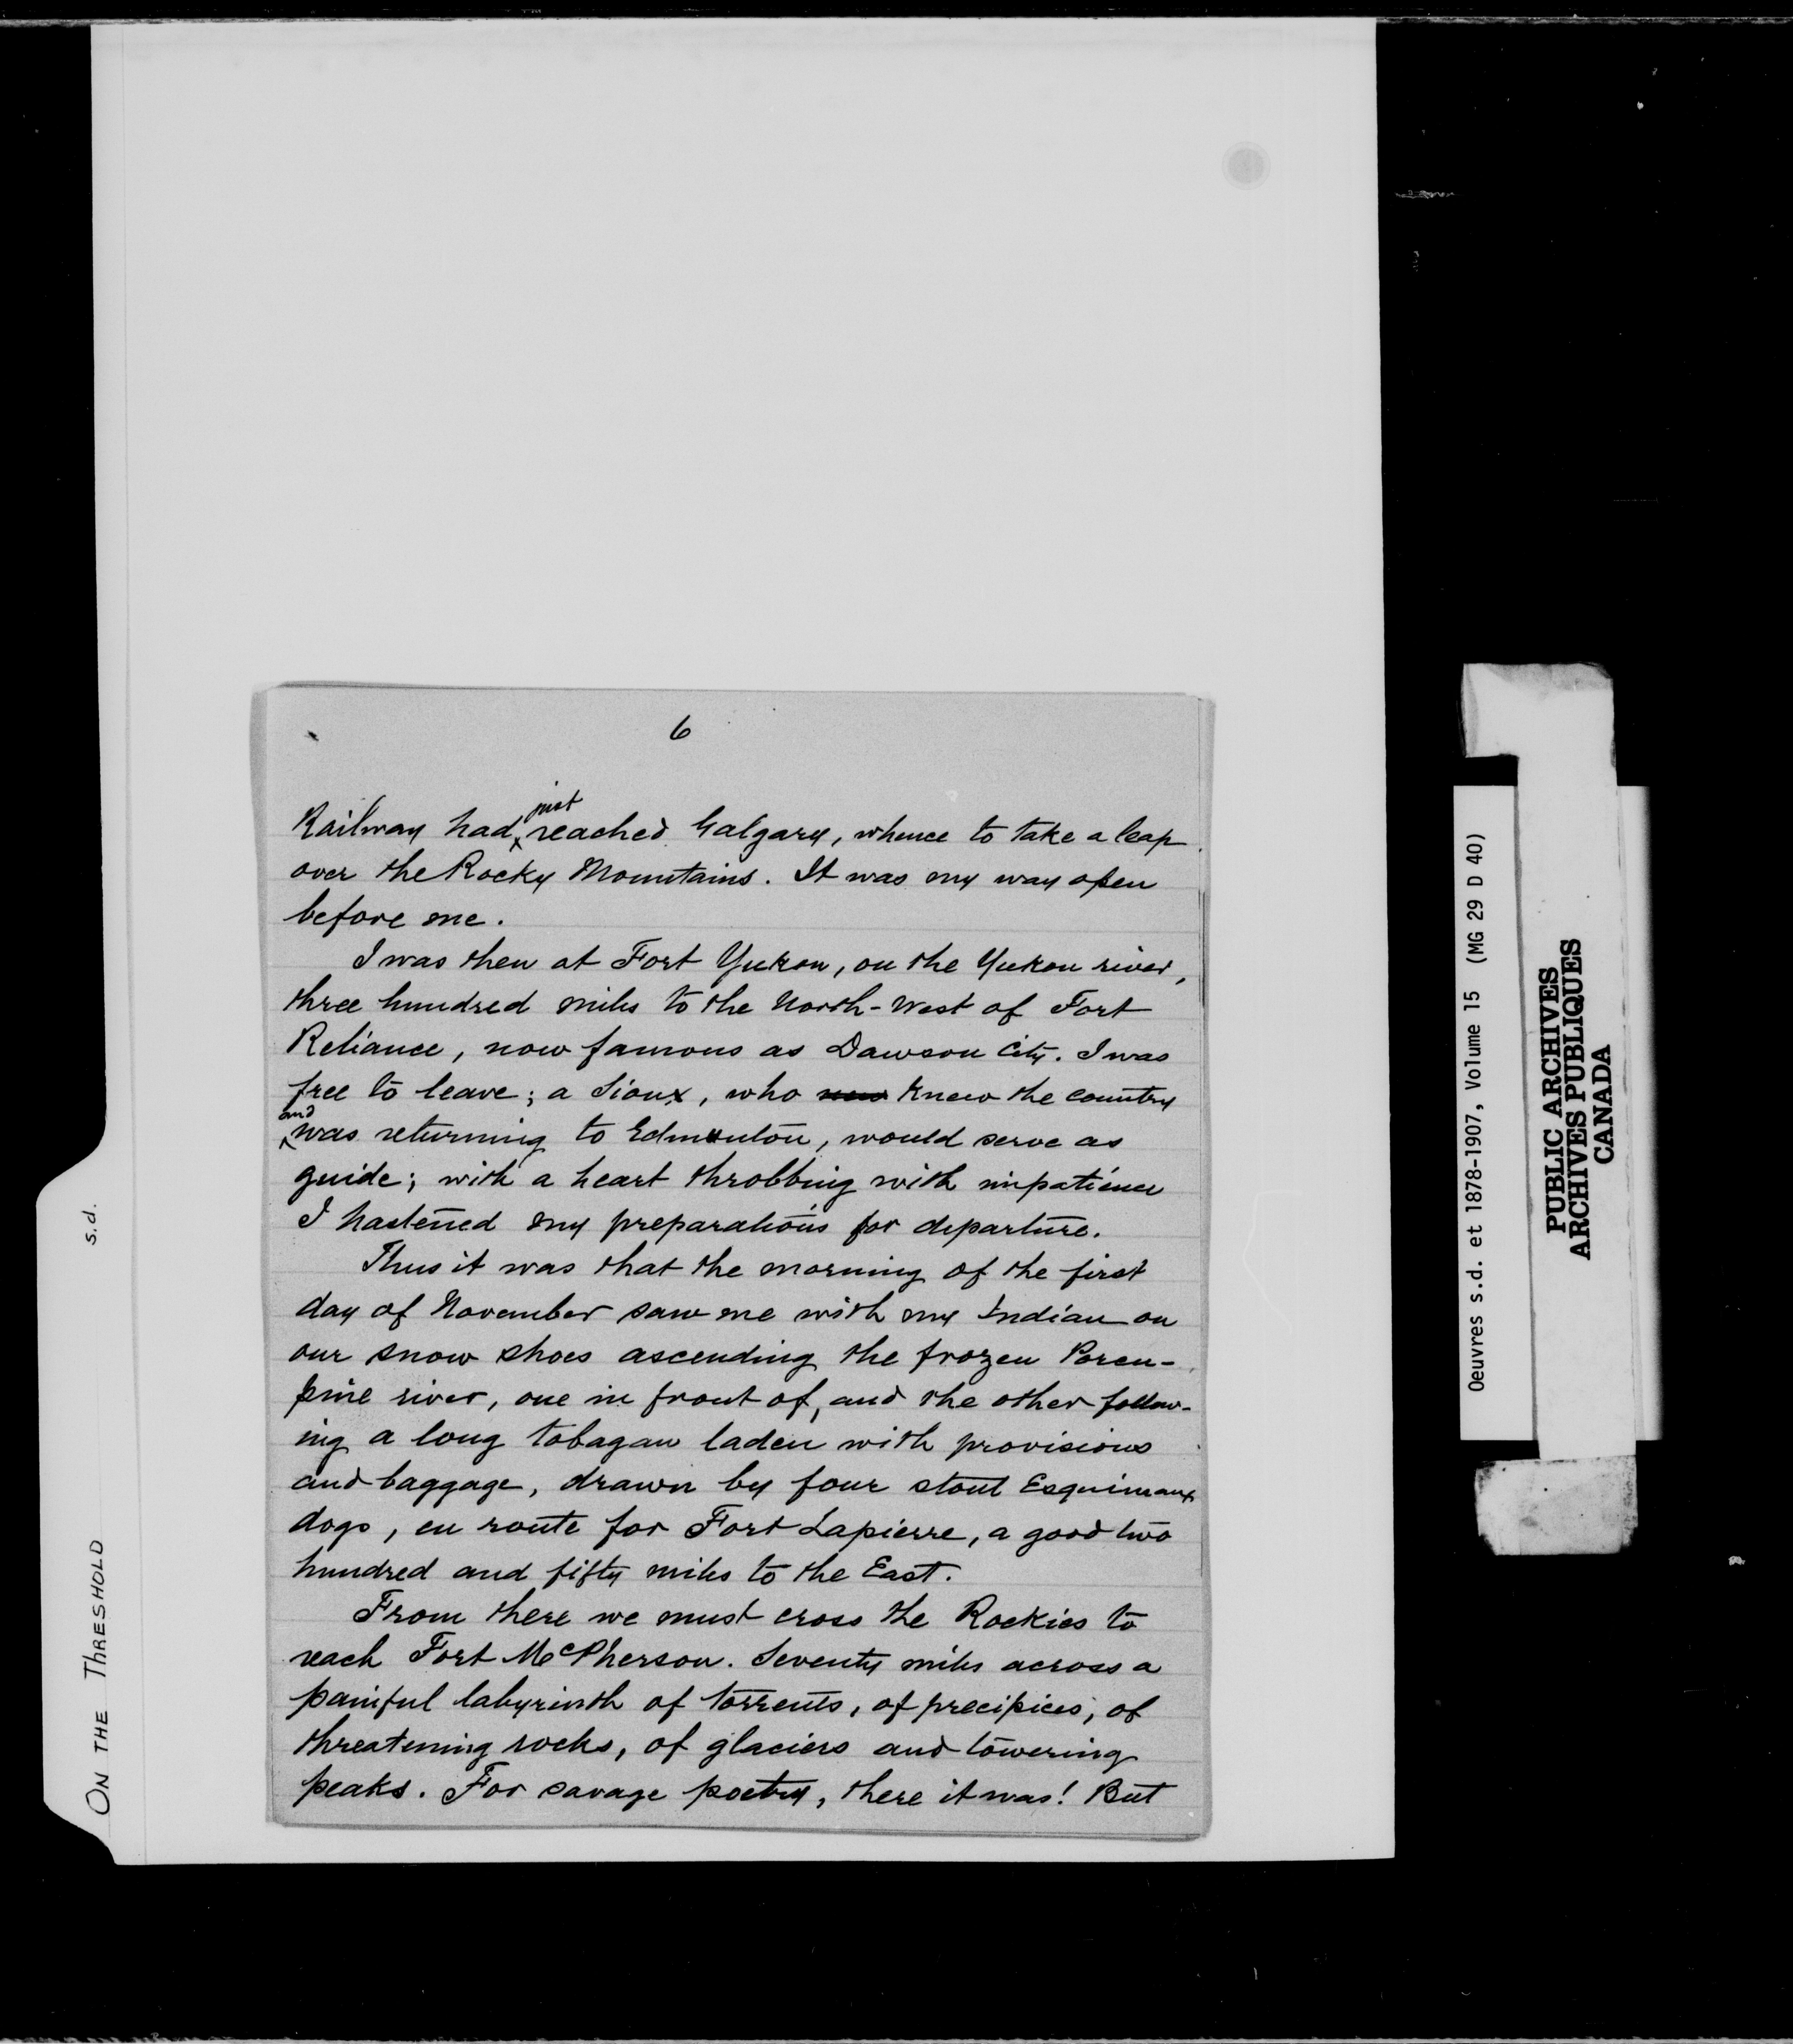 6
just
Railway had reached Calgary, whence to take a leap
over the Rocky Mountains. It was my way open
before me.
I was then at Fort Yukon, on the Yukon river,
three hundred miles to the North-West of Fort
Reliance, now famous as Dawson City. I was
free to leave; a Sioux, who knew the country
and
was returning to Edmonton, would serve as
guide; with a heart throbbing with impatience
I hastened my preparations for departure.
Thus it was that the morning of the first
day of November saw me with my Indian on
our snow shoes ascending the frozen Porcu-
pine river, one in front of, and the other follow-
ing a long tobagan laden with provisions
and baggage, drawn by four stout Esquimaux
dogs, en route for Fort Lapierre, a good two
hundred and fifty miles to the East.
From there we must cross the Rockies to
reach Fort McPherson. Seventy miles across a
painful labyrinth of torrents, of precipices, of
threatening rocks, of glaciers and towering
peaks. For savage poetry, there it was! But
ON THE THRESHOLD s.d.
Oeuvres s.d. et 1878-1907, Volume 15 (MG 29 D 40)
PUBLIC ARCHIVES
ARCHIVES PUBLIQUES
CANADA